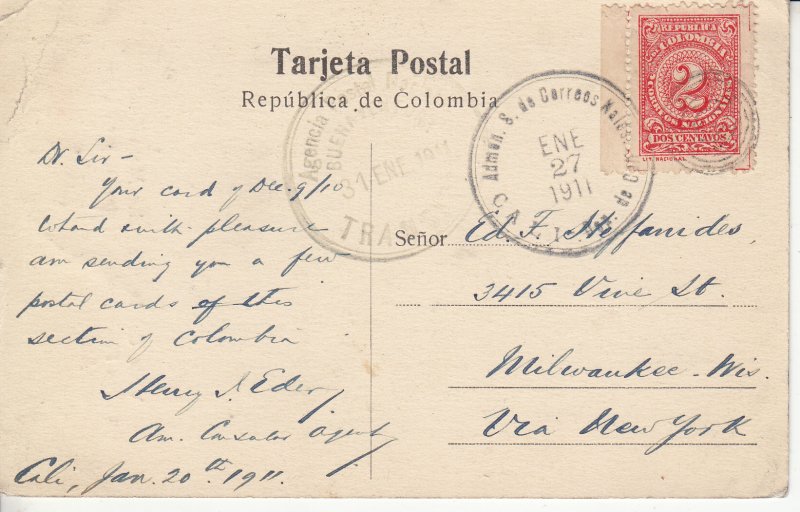 Tarjeta Postal
República de Colombia
REPUBLICA
DE COLOMBIA
2
CORREOS NACIONALES
DOS CENTAVOS
LIT. NACIONAL
Agencia Postal
BUEN
31 ENE 1911
TRA
Admón. S. de Correos Nales.
ENE
27
1911
CALI
Dr Sir -
Your card of Dec. 9/10
to hand with pleasure
am sending you a few
postal cards of this
section of Colombia
Henry J. Eder
Am. Consular Agent
Cali, Jan. 20th 1911.
Señor Ed. F.
3415 Vine St.
Milwaukee - Wis.
Via New York